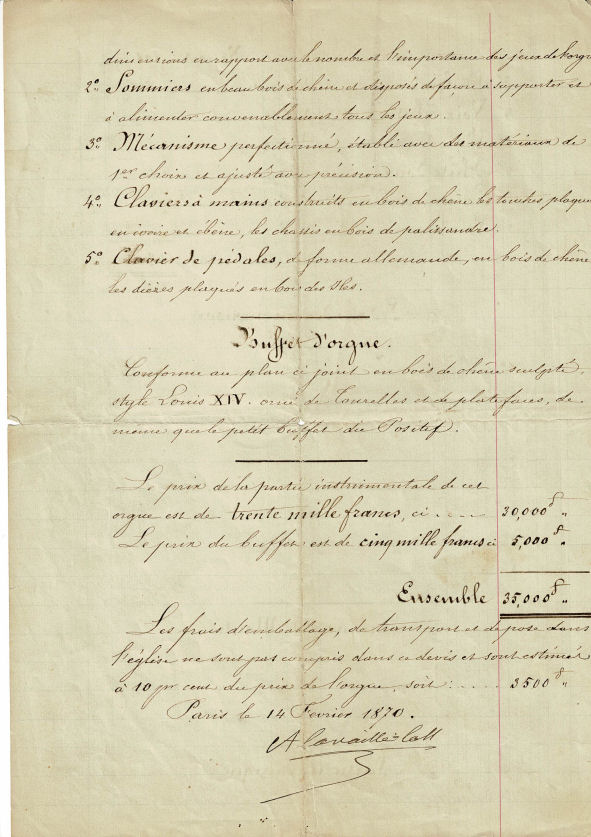 dimensions en rapport avec le nombre et l'importance des jeux de l'orgue
2º Sommiers en beau bois de chêne et disposés de façon à supporter et
à alimenter convenablement tous les jeux.
3º Mécanisme perfectionné, établi avec des matériaux de
1er choix et ajusté avec précision.
4º Claviers à mains construits en bois de chêne les touches plaqué
en ivoire et ébène, les chassis en bois de palissandre.
5º Clavier de pédales, de forme allemande, en bois de chêne
les dièzes plaqués en bois des Iles.
Buffet d'orgue.
Conforme au plan ci joint en bois de chêne sculpté,
style Louis XIV. orné de Tourelles et de plate faces, de
même que le petit Buffet du Positif.
Le prix de la partie instrumentale de cet
orgue est de trente mille francs, ci .... 30,000f „
Le prix du Buffet est de cinq mille francs ci 5,000f „
Ensemble 35,000f „
Les frais d'emballage, de transport et de pose dans
l'église ne sont pas compris dans ce devis et sont estimés
à 10 pr cent du prix de l'orgue, soit : .... 3500f „
Paris le 14 Fevrier 1870.
A Cavaillé-Coll